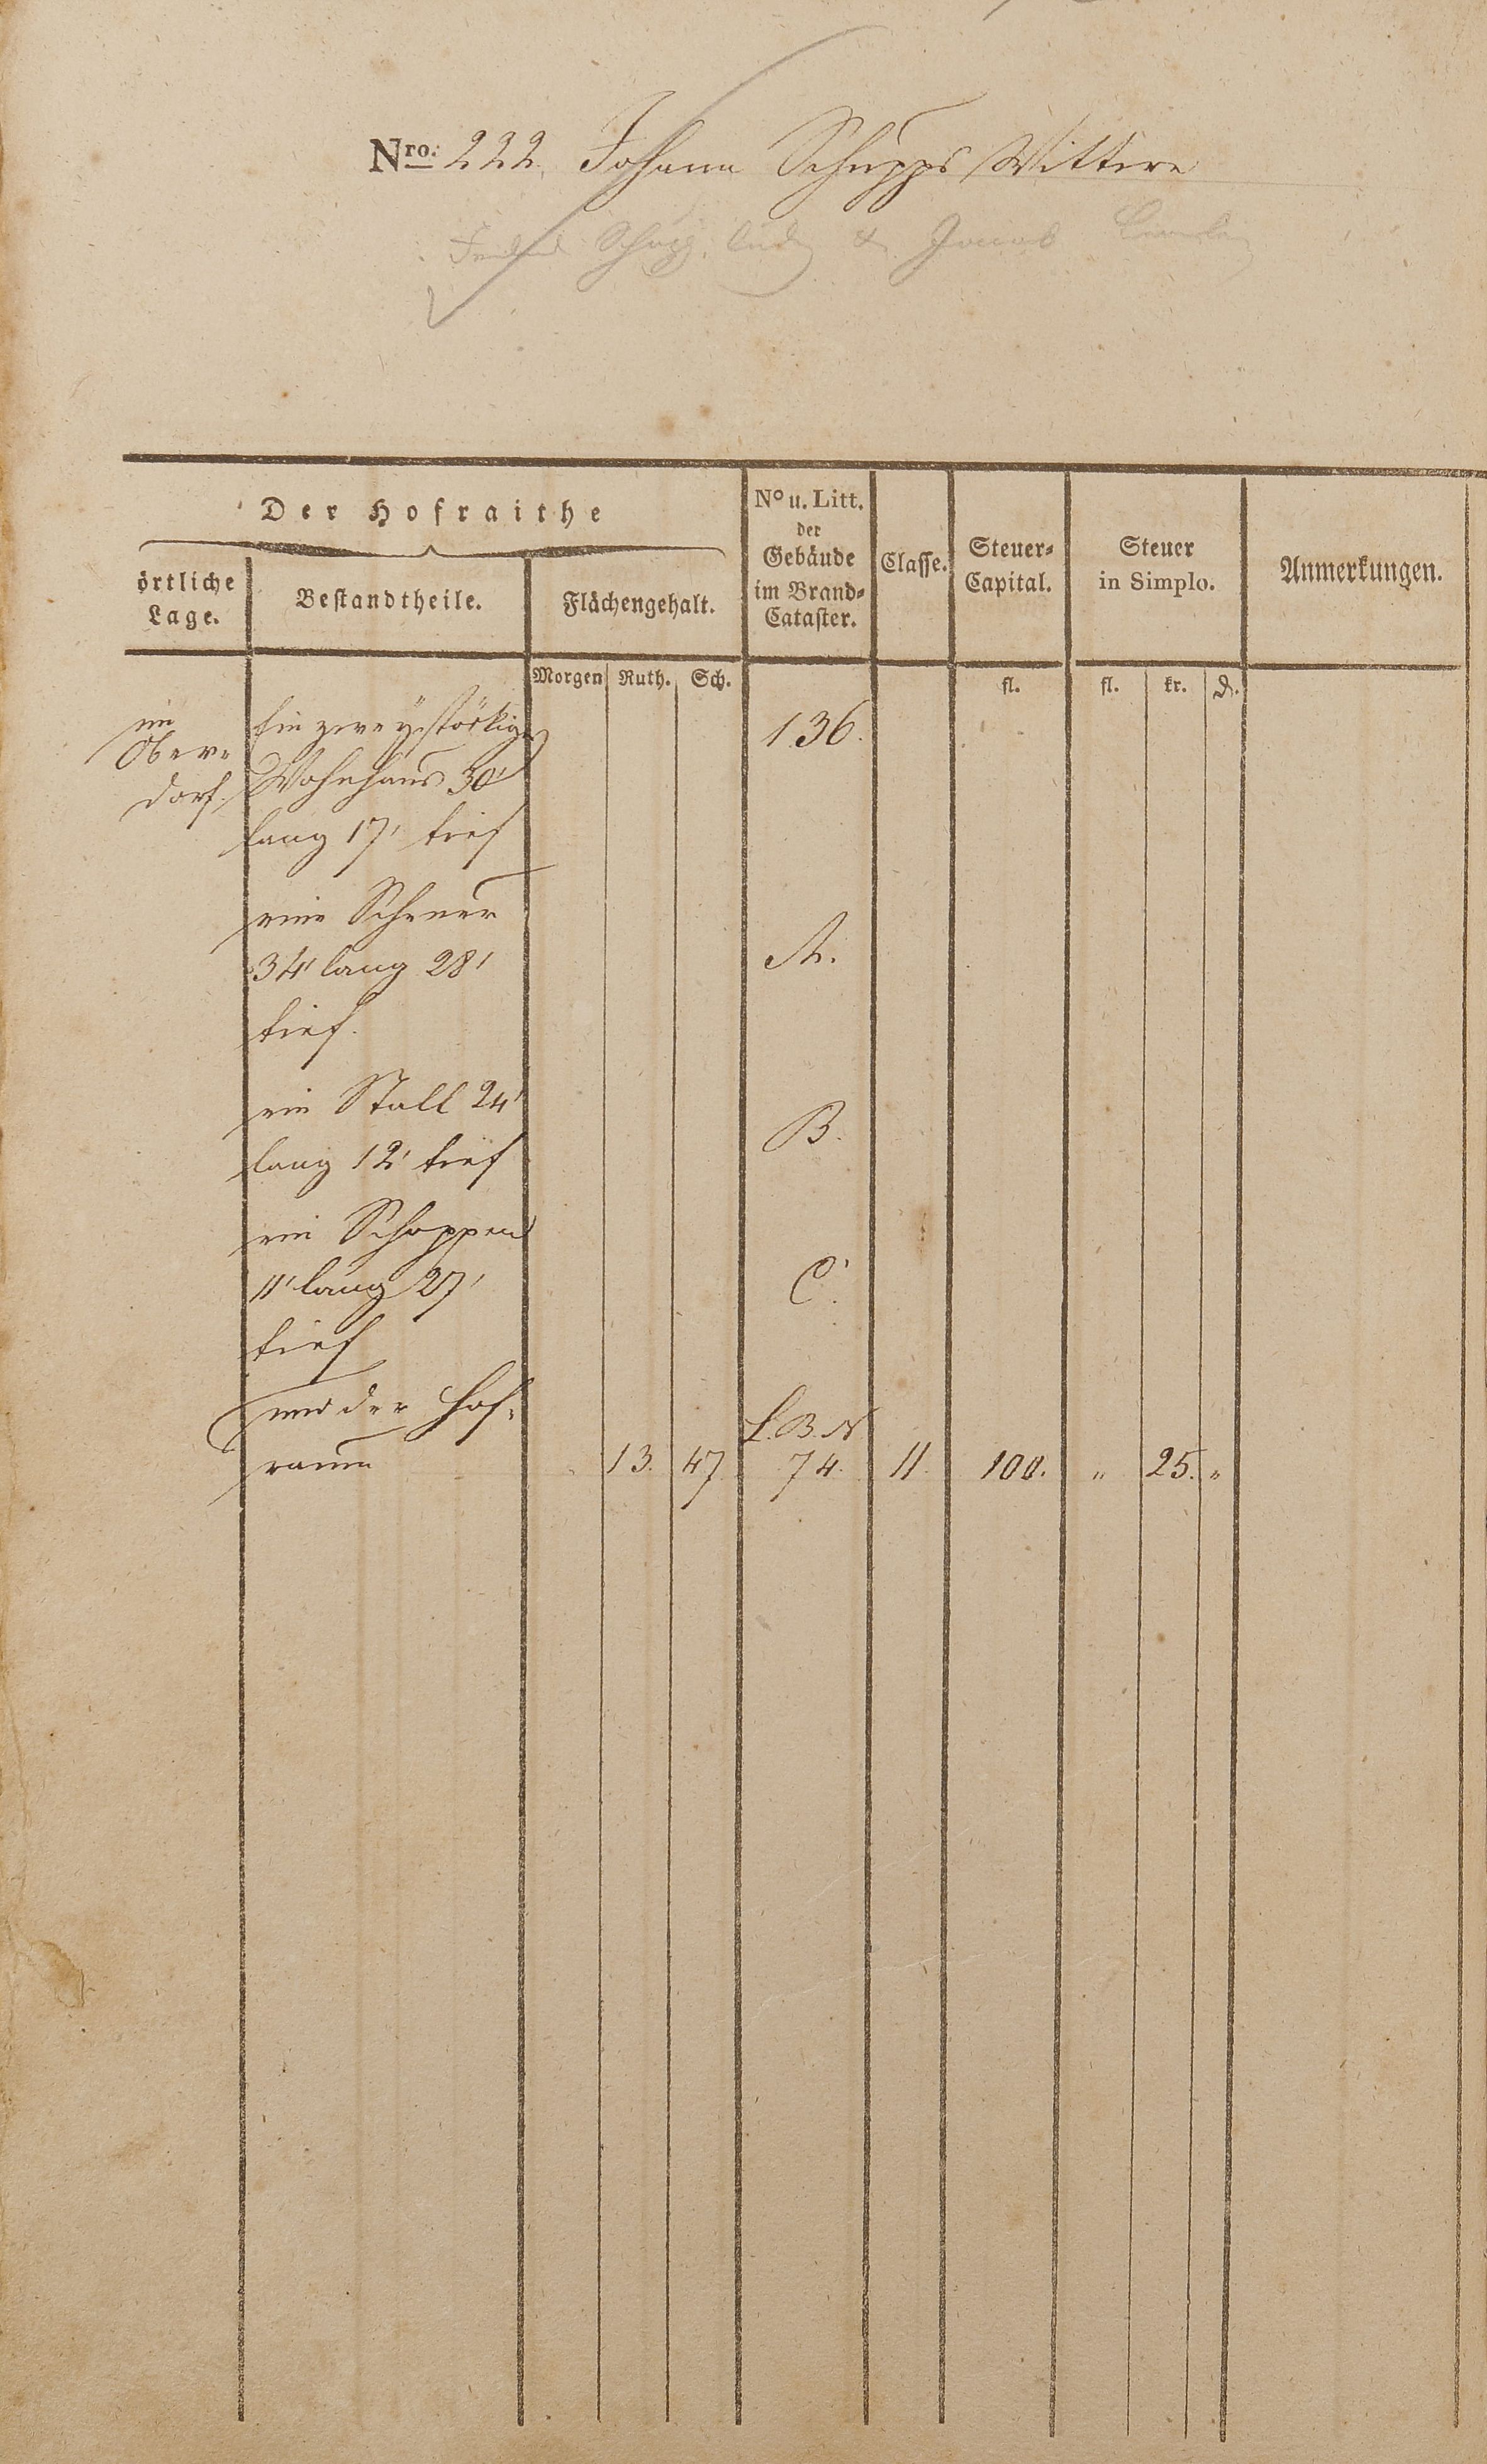 Nro. 222. Johann Schupps Wittwe
Schupp, & Jacob
Der Hofraithe
örtliche Lage.
Bestandtheile.
Flächengehalt.
No u. Litt. der Gebäude im Brand-Cataster.
Classe.
Steuer-Capital.
Steuer in Simplo.
Anmerkungen.
Morgen Ruth. Sch. fl. fl. kr. d.
im Ein zweystöckiges 136.
Ober Wohnhaus 30'
dorf. lang 17' tief
eine Scheuer
34' lang 28' A.
tief.
ein Stall 24' B.
lang 12' tief
ein Schoppen
11' lang 27' C.
tief
und der Hof- L.B.N
raum 13. 47 74. 11. 100. " 25. "